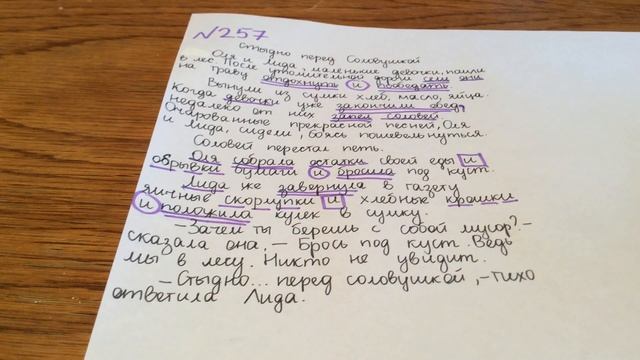 №257
Стыдно перед Соловушкой
Оля и Лида, маленькие девочки, пошли
в лес. После утомительной дороги сели они
на траву отдохнуть и пообедать.
Вынули из сумки хлеб, масло, яйца.
Когда девочки уже закончили обед,
недалеко от них запел соловей.
Очарованные прекрасной песней, Оля
и Лида, сидели, боясь пошевельнуться.
Соловей перестал петь.
Оля собрала остатки своей еды и
обрывки бумаги и бросила под куст.
Лида же завернула в газету
яичные скорлупки и хлебные крошки
и положила кулек в сумку.
– Зачем ты берешь с собой мусор? –
сказала она, – Брось под куст. Ведь
мы в лесу. Никто не увидит.
– Стыдно... перед соловушкой, – тихо
ответила Лида.